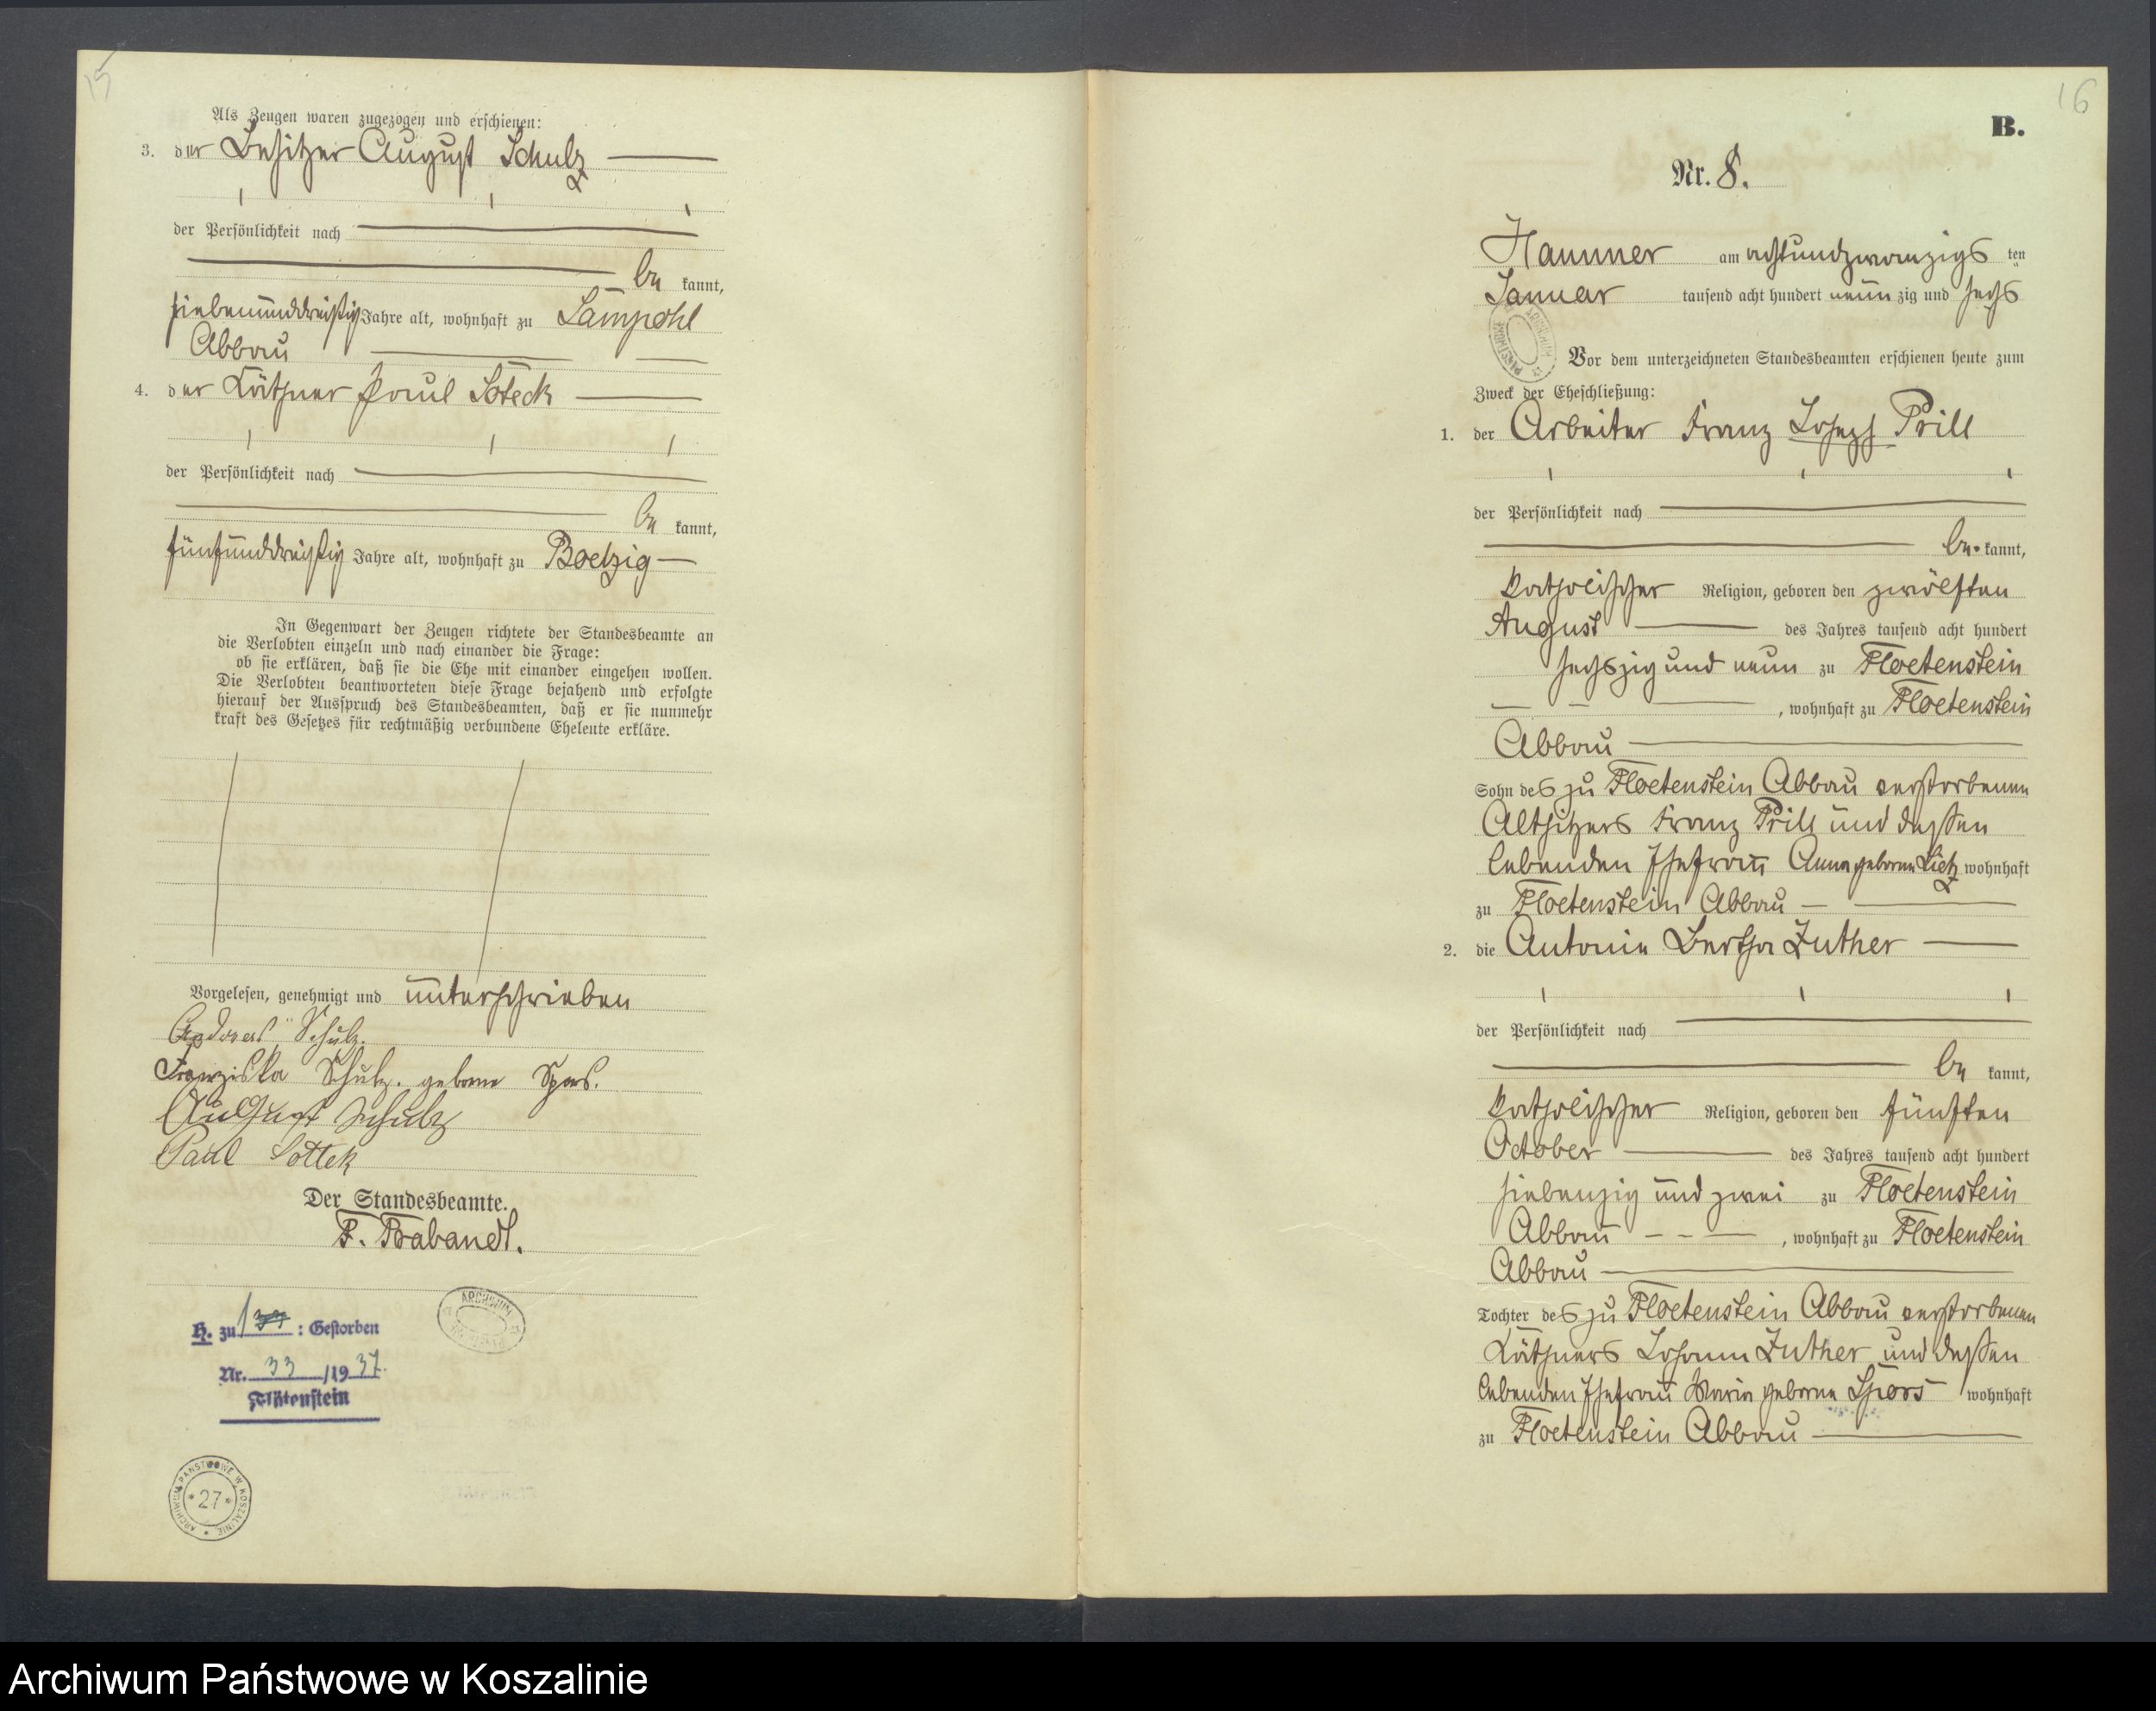 15
Als Zeugen waren zugezogen und erschienen:
3. der Besitzer August Schulz
der Persönlichkeit nach
be kannt,
siebenunddreißig Jahre alt, wohnhaft zu Lampohl
Abbau
4. der Käthner Paul Soteck
der Persönlichkeit nach
be kannt,
fünfunddreißig Jahre alt, wohnhaft zu Boetzig
In Gegenwart der Zeugen richtete der Standesbeamte an
die Verlobten einzeln und nach einander die Frage:
ob sie erklären, daß sie die Ehe mit einander eingehen wollen.
Die Verlobten beantworteten diese Frage bejahend und erfolgte
hierauf der Ausspruch des Standesbeamten, daß er sie nunmehr
kraft des Gesetzes für rechtmäßig verbundene Eheleute erkläre.
Vorgelesen, genehmigt und unterschrieben
Andreas Schulz.
Franziska Schulz. geborne Spors.
August Schulz
Paul Sottek
Der Standesbeamte.
F. Brabandt.
H. zu 1 : Gestorben
Nr. 33 /19 37.
Flötenstein
ARCHIWUM
ARCHIWUM PAŃSTWOWE W KOSZALINIE
* 27 *
16
B.
Nr. 8.
Hammer am achtundzwanzigs ten
Januar tausend acht hundert neun zig und sechs
Vor dem unterzeichneten Standesbeamten erschienen heute zum
Zweck der Eheschließung:
1. der Arbeiter Franz Joseph Prill
der Persönlichkeit nach
be kannt,
katholischer Religion, geboren den zwölften
August des Jahres tausend acht hundert
sechszig und neun zu Floetenstein
, wohnhaft zu Floetenstein
Abbau
Sohn des zu Floetenstein Abbau verstorbenen
Altsitzers Franz Prill und dessen
lebenden Ehefrau Anna geborne Lietz wohnhaft
zu Floetenstein Abbau
2. die Antonie Bertha Zuther
der Persönlichkeit nach
be kannt,
katholischer Religion, geboren den fünften
October des Jahres tausend acht hundert
siebenzig und zwei zu Floetenstein
Abbau , wohnhaft zu Floetenstein
Abbau
Tochter des zu Floetenstein Abbau verstorbenen
Käthners Johann Zuther und dessen
lebenden Ehefrau Maria geborne Spors wohnhaft
zu Floetenstein Abbau
Archiwum Państwowe w Koszalinie